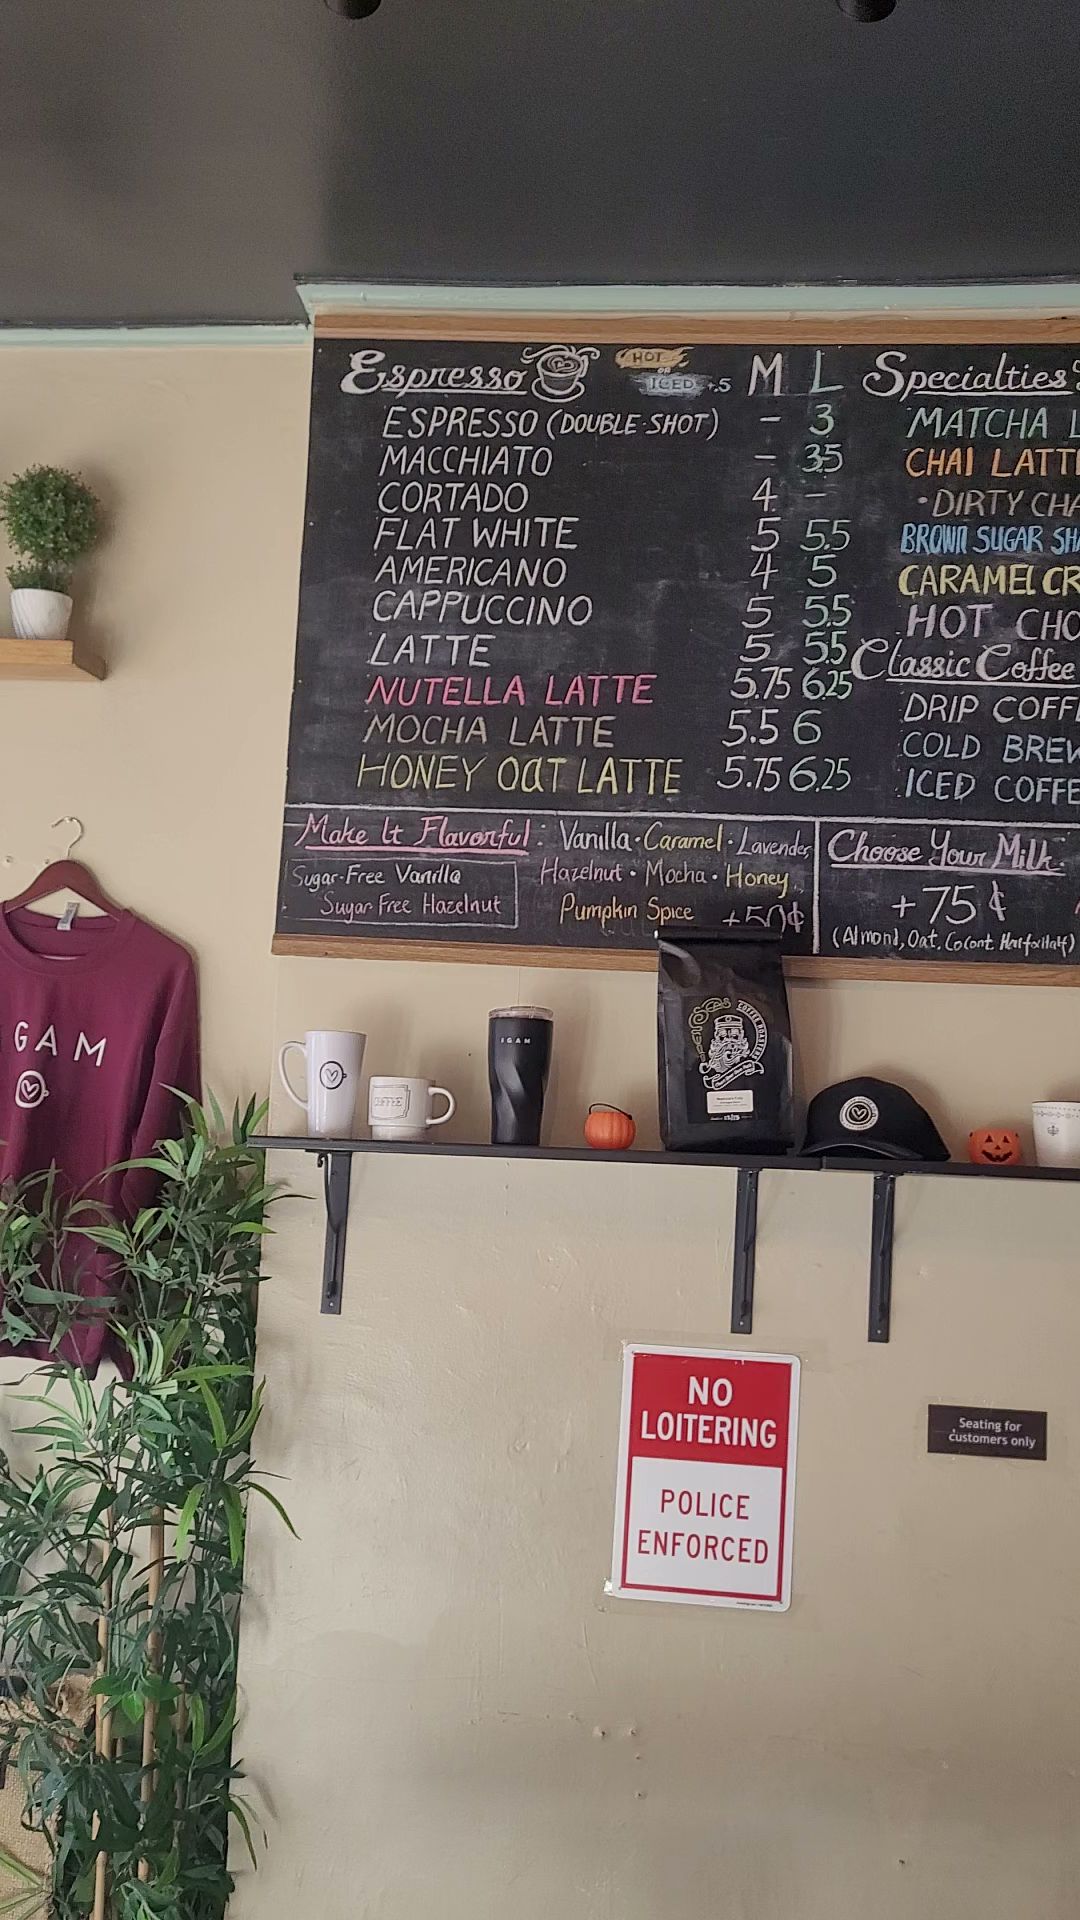 Espresso HOT or ICED +.5 M L
ESPRESSO (DOUBLE-SHOT) - 3
MACCHIATO - 3.5
CORTADO 4 -
FLAT WHITE 5 5.5
AMERICANO 4 5
CAPPUCCINO 5 5.5
LATTE 5 5.5
NUTELLA LATTE 5.75 6.25
MOCHA LATTE 5.5 6
HONEY OAT LATTE 5.75 6.25
Specialties
MATCHA L
CHAI LATT
• DIRTY CHA
BROWN SUGAR SH
CARAMEL CR
HOT CHO
Classic Coffee
DRIP COFF
COLD BREW
ICED COFFE
Make It Flavorful: Vanilla · Caramel · Lavender
Sugar-Free Vanilla
Sugar Free Hazelnut
Hazelnut · Mocha · Honey
Pumpkin Spice +50¢
Choose Your Milk:
+75¢
(Almond, Oat, Cocont, Half&Half)
GAM
COFFEE
IGAM
COFFEE ROASTERS
NO
LOITERING
POLICE
ENFORCED
Seating for
customers only